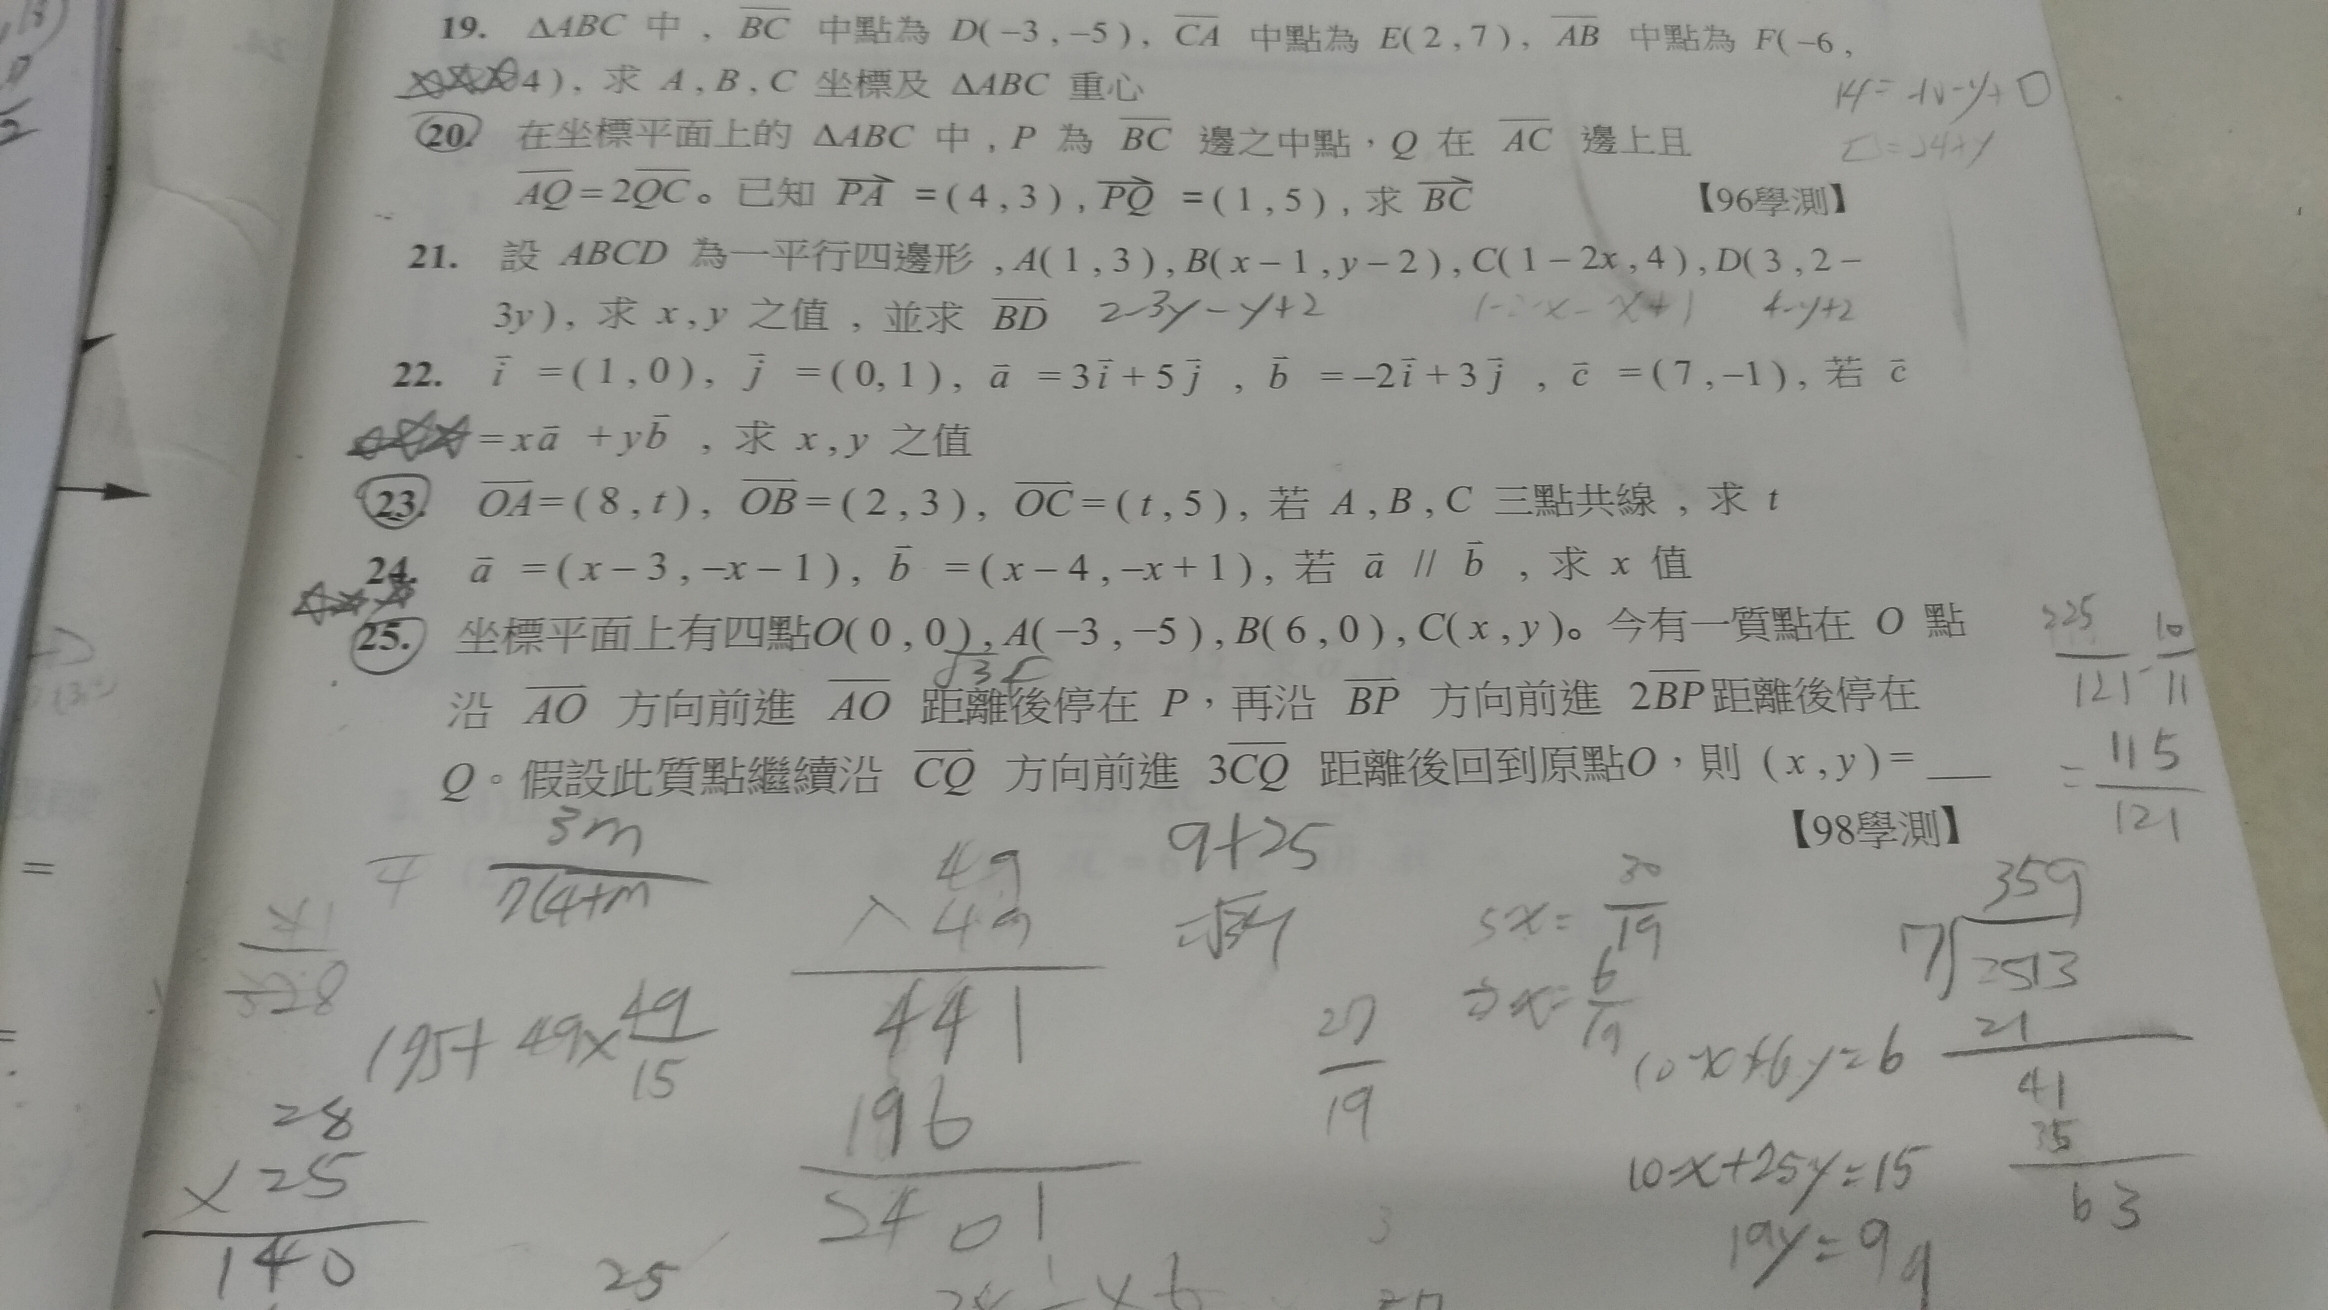 19. ΔABC 中, BC 中點為 D(-3,-5), CA 中點為 E(2,7), AB 中點為 F(-6,
4), 求 A,B,C 坐標及 ΔABC 重心
20. 在坐標平面上的 ΔABC 中, P 為 BC 邊之中點, Q 在 AC 邊上且
AQ=2QC。已知 PA =(4,3), PQ =(1,5), 求 BC 【96學測】
21. 設 ABCD 為一平行四邊形, A(1,3), B(x-1,y-2), C(1-2x,4), D(3,2-
3y), 求 x,y 之值, 並求 BD 2-3y-y+2 4-y+2
22. i =(1,0), j =(0,1), a =3i+5j, b =-2i+3j, c =(7,-1), 若 c
=xa +yb, 求 x,y 之值
23. OA=(8,t), OB=(2,3), OC=(t,5), 若 A,B,C 三點共線, 求 t
24. a =(x-3,-x-1), b =(x-4,-x+1), 若 a // b, 求 x 值
25. 坐標平面上有四點O(0,0), A(-3,-5), B(6,0), C(x,y)。今有一質點在 O 點
沿 AO 方向前進 AO 距離後停在 P, 再沿 BP 方向前進 2BP距離後停在
Q。假設此質點繼續沿 CQ 方向前進 3CQ 距離後回到原點O, 則 (x,y)= ___
【98學測】
225/121 - 10/11
= 115/121
3m
7(4+m
49
× 49
441
196
2401
9+25
=√34
195+49×49/15
28
× 25
140
25
27/19
5x= 30/19
x= 6/19
10x+6y=6
10x+25y=15
19y=9
359
7)2513
21
41
35
63